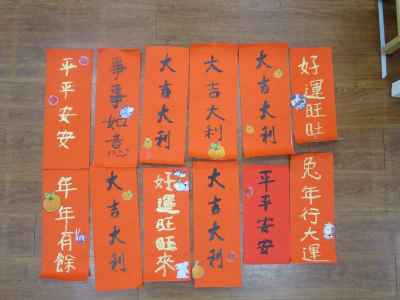 平平安安
事事如意
大吉大利
大吉大利
大吉大利
好運旺旺
年年有餘
大吉大利
好運旺旺來
大吉大利
平平安安
兔年行大運